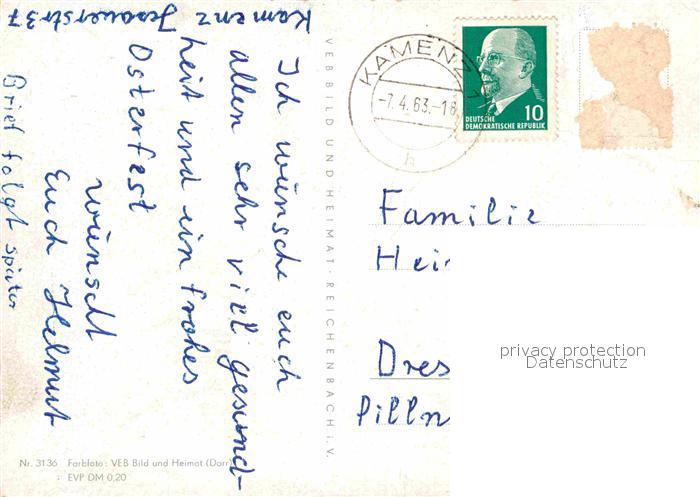 Kamenz
Jesauerstr 37
Ich wünsche euch
allen sehr viel gesund-
heit und ein frohes
Osterfest
wünscht
Euch Helmut
Brief folgt später
VEB BILD UND HEIMAT · REICHENBACH i. V.
Nr. 3136 Farbfoto: VEB Bild und Heimat (Darr)
EVP DM 0,20
KAMENZ 1
-7.4.63.-18
h
10
DEUTSCHE
DEMOKRATISCHE REPUBLIK
Familie
Hei
Dres
Pilln
privacy protection
Datenschutz